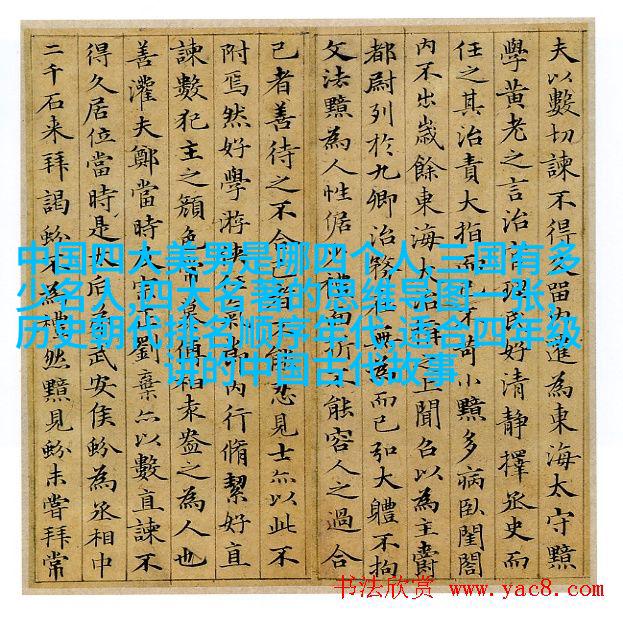 夫以數切諫不得久留內遷為東海太守黯
學黃老之言治官理民好清靜擇丞史而
任之其治責大指而已不苛小黯多病臥閨閤
內不出歲餘東海大治稱之上聞召以為主爵
都尉列於九卿治務在無為而已弘大體不拘
文法黯為人性倨少禮面折不能容人之過合
己者善待之不合己者不能忍見士亦以此不
附焉然好學游俠任氣節內行脩絜好直
諫數犯主之顏色常慕傅柏袁盎之為人也
善灌夫鄭當時及宗正劉棄亦以數直諫不
得久居位當時是太后弟武安侯蚡為丞相中
二千石來拜謁蚡不為禮然黯見蚡未嘗拜常
中国四大美男是哪四个人,三国有多
少名人,四大名著的思维导图一张,
历史朝代排名顺序年代,适合四年级
讲的中国古代故事
书法欣赏 www.yac8.com